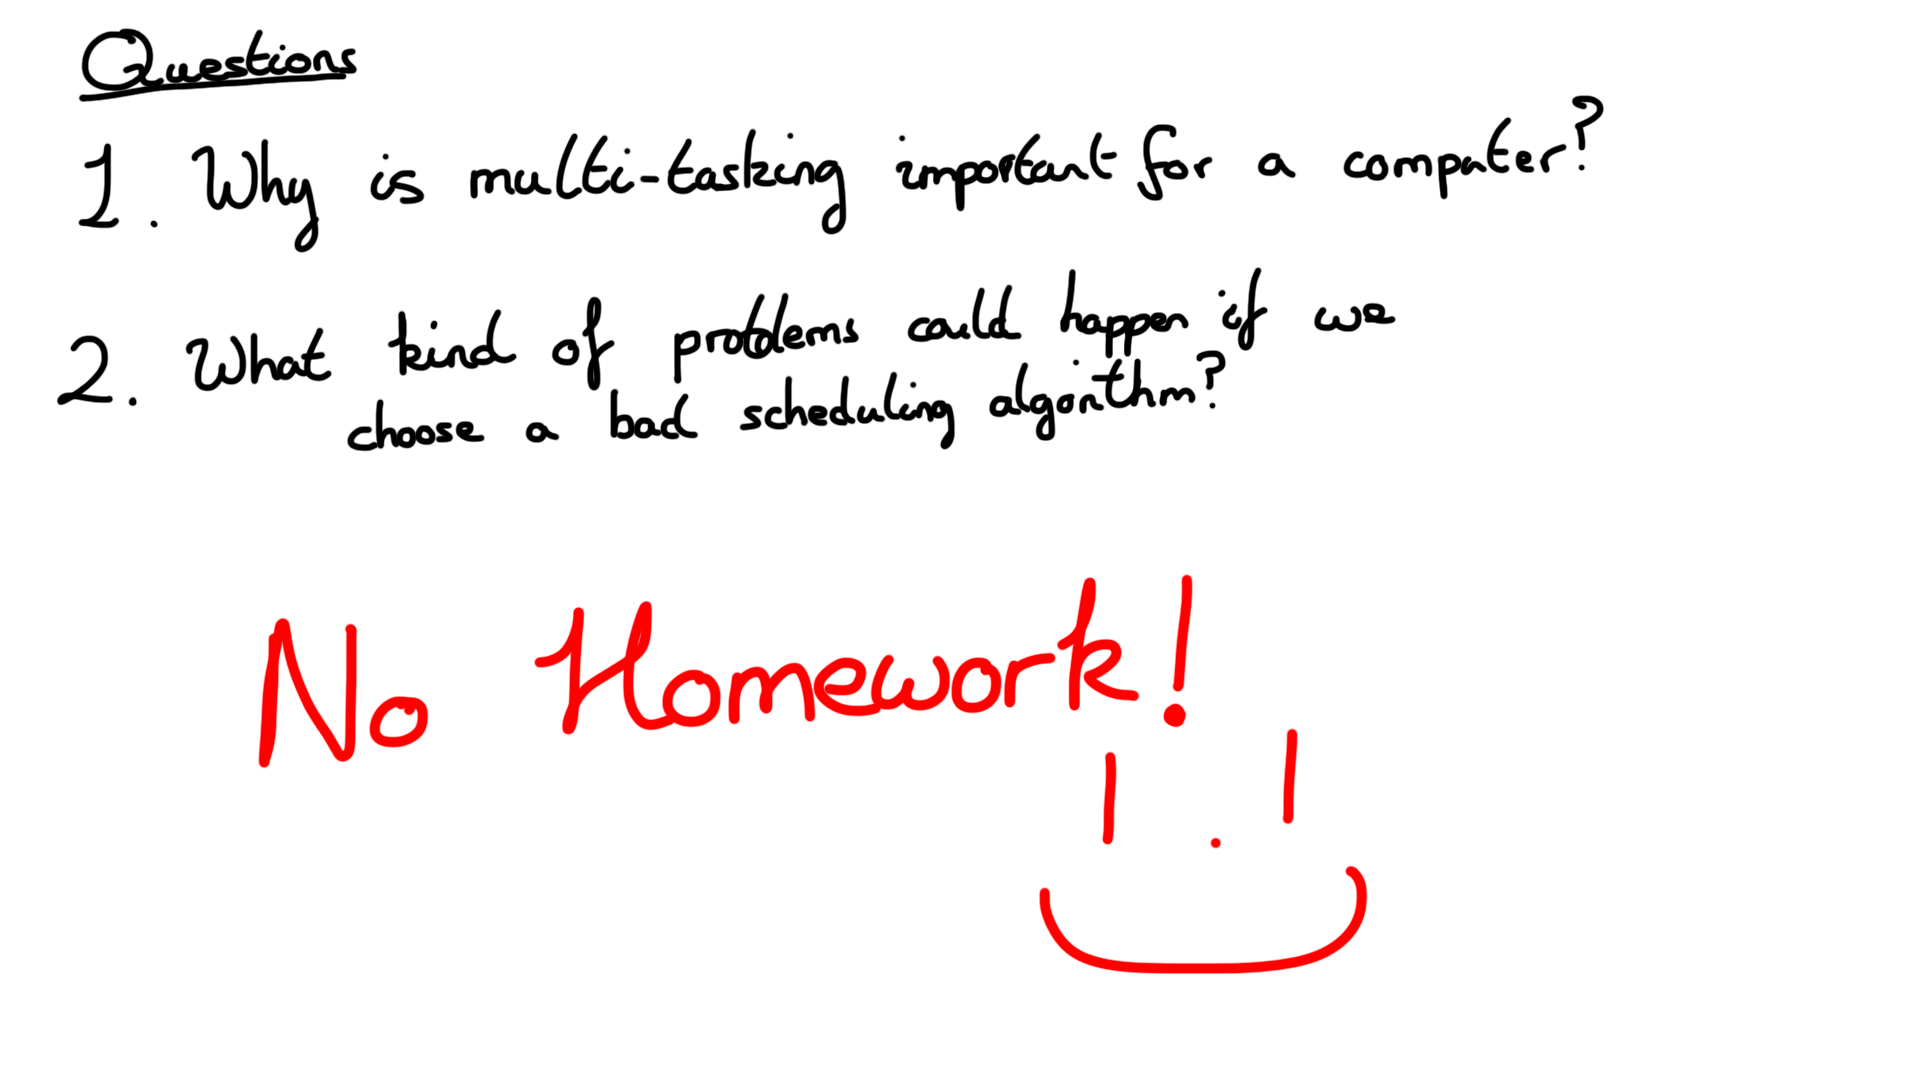 Questions
1. Why is multi-tasking important for a computer?
2. What kind of problems could happen if we
choose a bad scheduling algorithm?
No Homework!